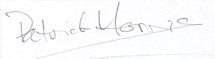 Patrick Morris